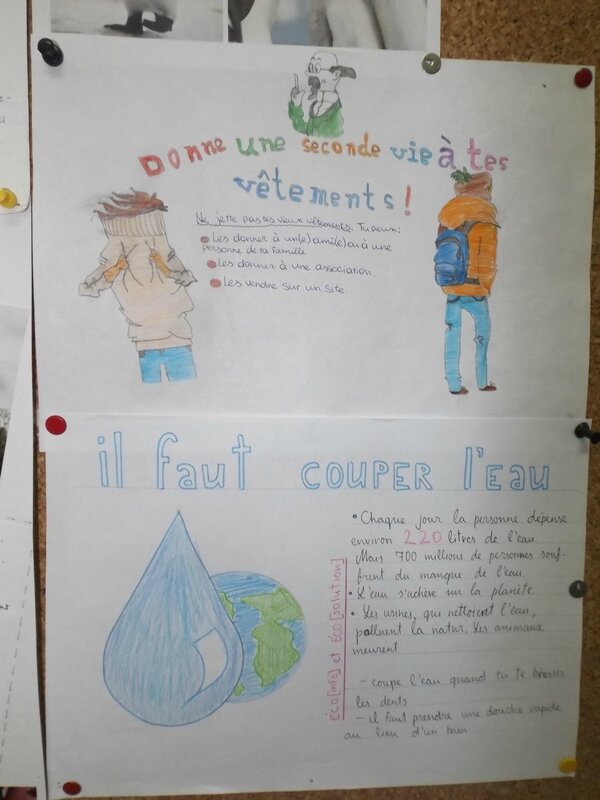 Donne une seconde vie à tes
vêtements !
Ne jette pas tes vieux vêtements. Tu peux :
Les donner à un(e) ami(e) ou à une
personne de ta famille
Les donner à une association.
Les vendre sur un site.
il faut couper l'eau
• Chaque jour la personne dépense
environ 220 litres de l'eau
Mais 700 millions de personnes souf-
frent du manque de l'eau
• L'eau s'achève sur la planète
• Les usines, qui nettoient l'eau,
polluent la natur. Les animaux
meurent
ÉCO[info] et ÉCO[solution]
- coupe l'eau quand tu te brosses
les dents
- il faut prendre une douche rapide
au lieu d'un bain